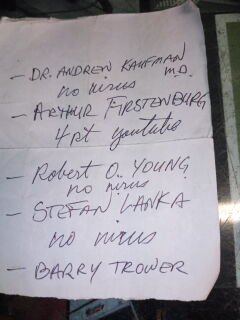 - DR. ANDREW KAUFMAN M.D.
no virus
- ARTHUR FIRSTENBURG
4 pt youtube
- Robert O. YOUNG
no virus
- STEFAN LANKA
no virus
- BARRY TROWER